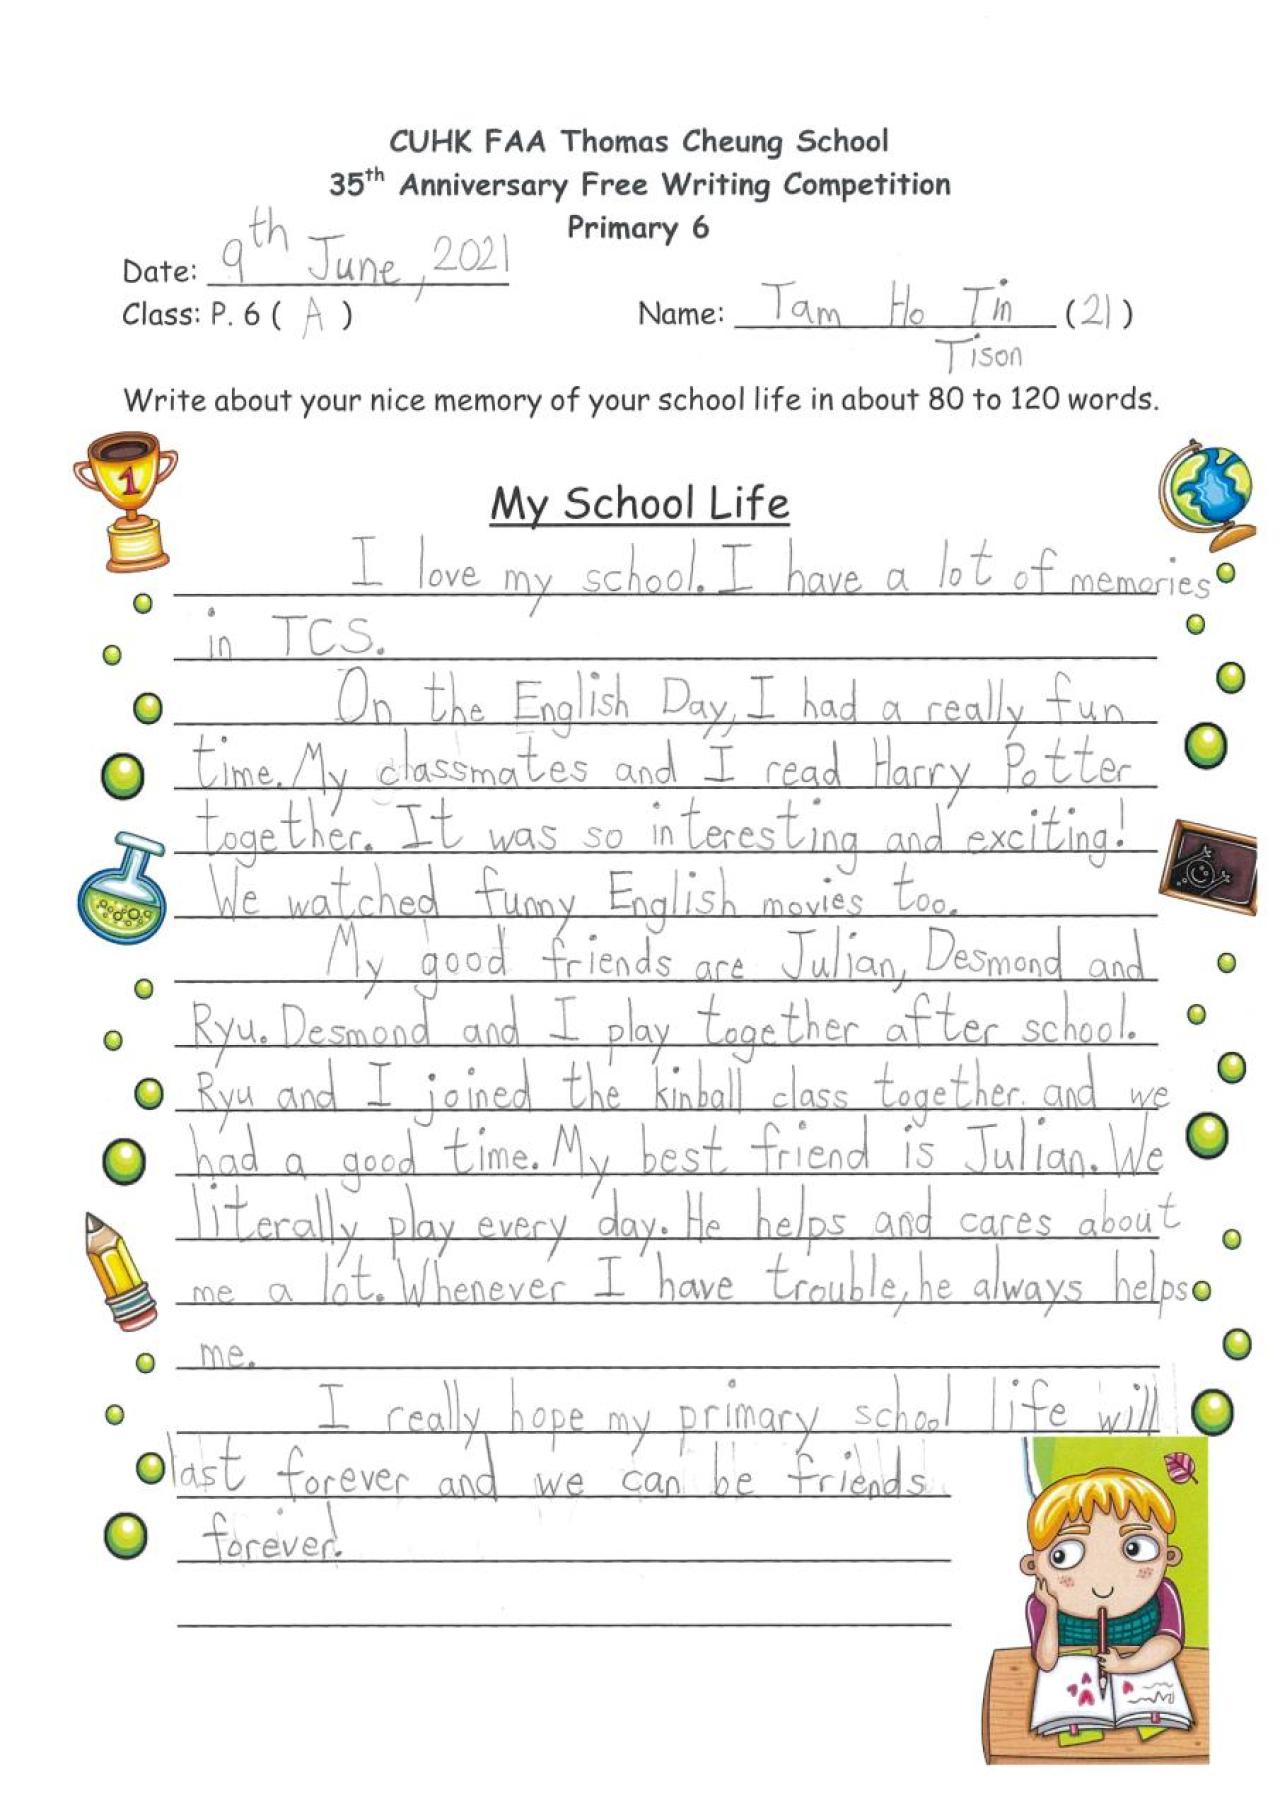 CUHK FAA Thomas Cheung School
35th Anniversary Free Writing Competition
Primary 6
Date: 9th June, 2021
Class: P. 6 ( A ) Name: Tam Ho Tin (21)
Tison
Write about your nice memory of your school life in about 80 to 120 words.
1
My School Life
I love my school. I have a lot of memories
in TCS.
On the English Day, I had a really fun
time. My classmates and I read Harry Potter
together. It was so interesting and exciting!
We watched funny English movies too.
My good friends are Julian, Desmond and
Ryu. Desmond and I play together after school.
Ryu and I joined the kinball class together and we
had a good time. My best friend is Julian. We
literally play every day. He helps and cares about
me a lot. Whenever I have trouble, he always helps
me.
I really hope my primary school life will
last forever and we can be friends
forever!